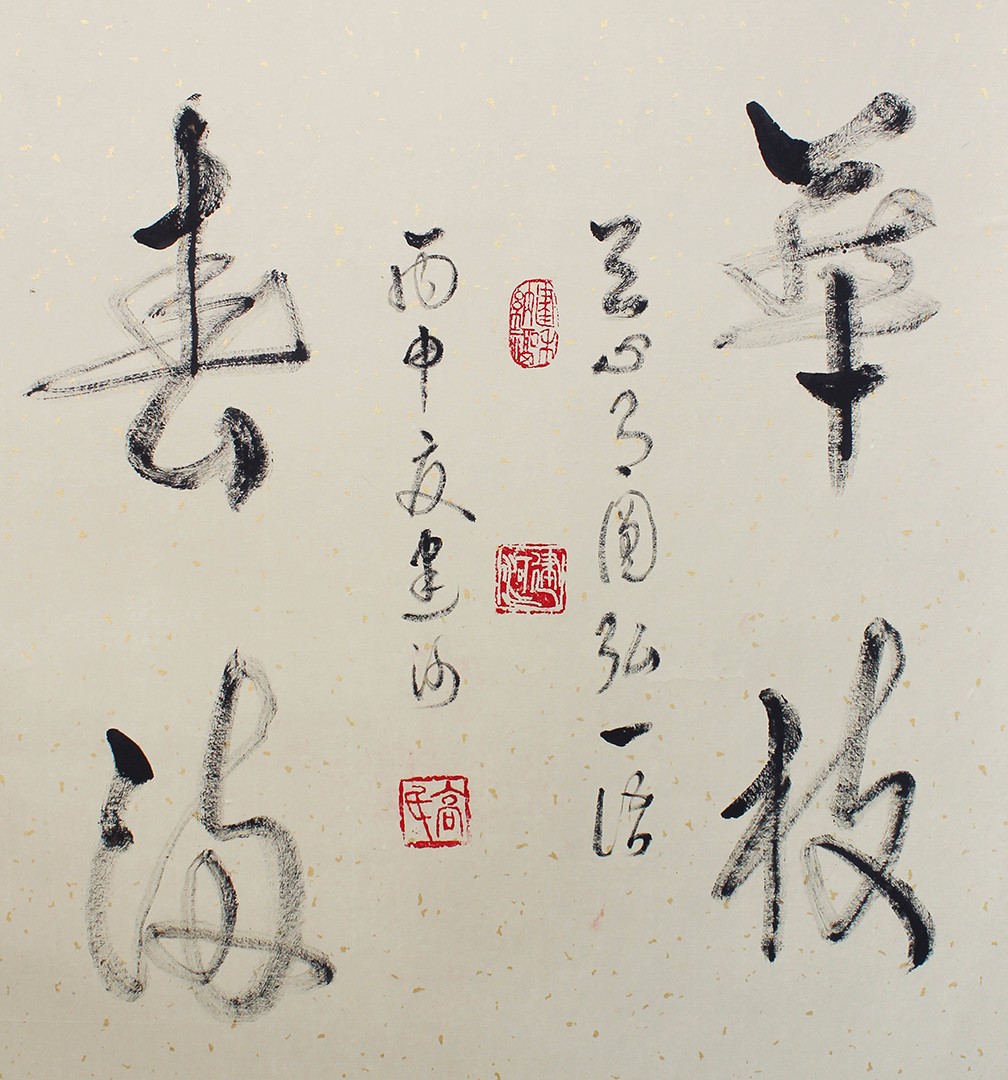 華枝
天心月圓弘一語
春滿
丙申夏建河
建河
高氏